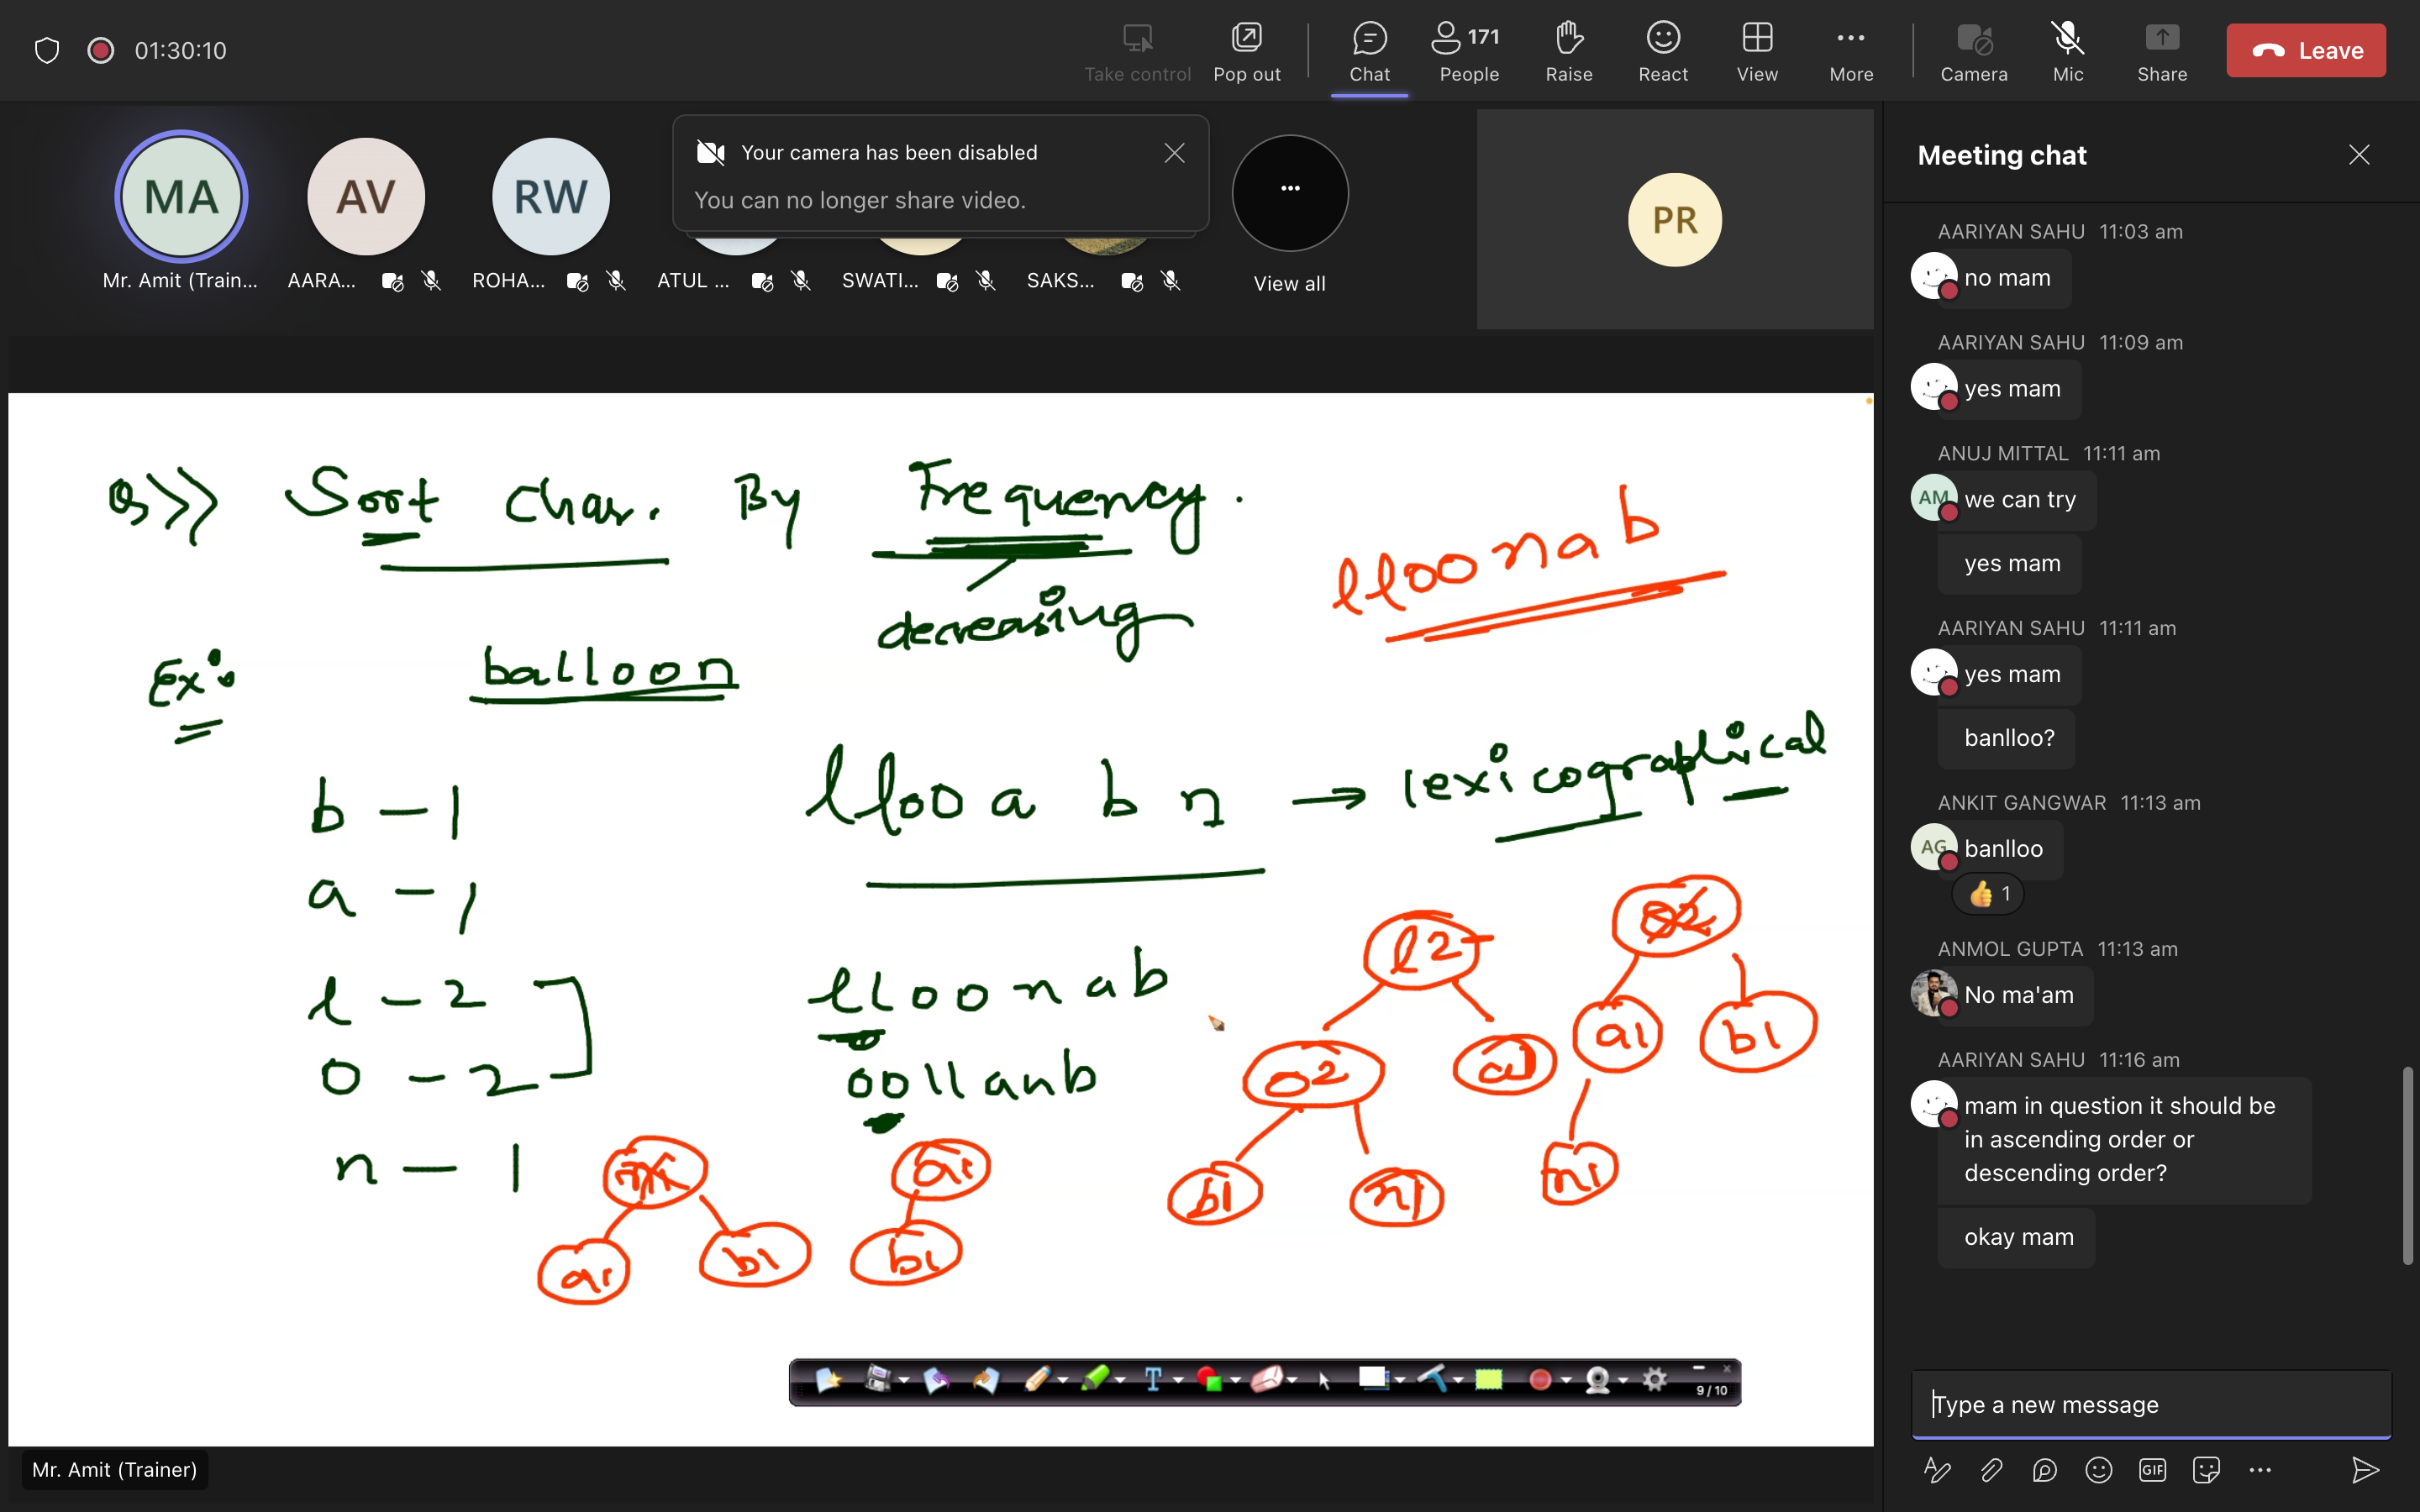 01:30:10
Take control
Pop out
Chat
171
People
Raise
React
View
More
Camera
Mic
Share
Leave
MA
AV
RW
Your camera has been disabled
You can no longer share video.
...
PR
Mr. Amit (Train...
AARA...
ROHA...
ATUL ...
SWATI...
SAKS...
View all
Sort Char. By Frequency.
decreasing
lloonab
Ex:
balloon
b - 1
a - 1
l - 2
o - 2
n - 1
lloo a b n → lexicographical
lloonab
oollanb
l2
o2
a1
b1
n1
a1
b1
n1
a1
b1
a1
b1
9 / 10
Mr. Amit (Trainer)
Meeting chat
AARIYAN SAHU 11:03 am
no mam
AARIYAN SAHU 11:09 am
yes mam
ANUJ MITTAL 11:11 am
AM
we can try
yes mam
AARIYAN SAHU 11:11 am
yes mam
banlloo?
ANKIT GANGWAR 11:13 am
AG
banlloo
👍 1
ANMOL GUPTA 11:13 am
No ma'am
AARIYAN SAHU 11:16 am
mam in question it should be
in ascending order or
descending order?
okay mam
Type a new message
GIF